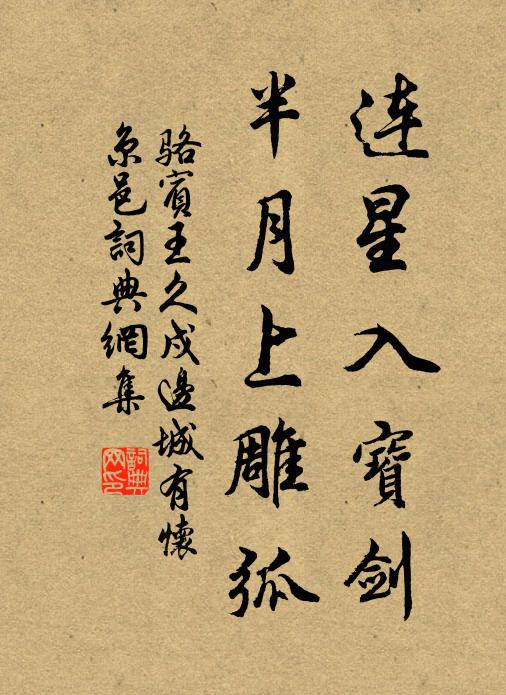 连星入寶剑
半月上雕弧
骆賓王久戍邊城有懷
京邑詞典網集
詞典网印